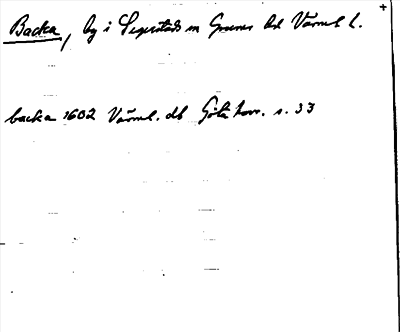 Backa, by i Segerstads sn Grums hd Värml l.
backa 1602 Värml. db Göta hovr. s. 33